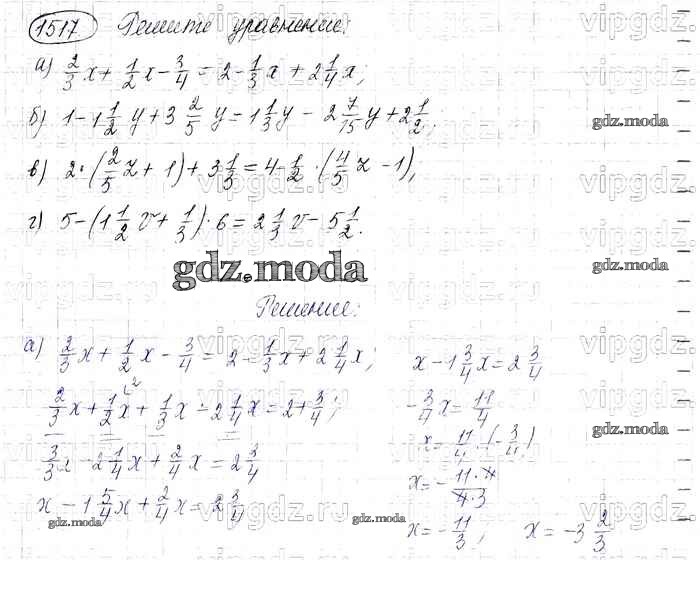 1517 Решите уравнение:
а) 2/3 x + 1/2 x - 3/4 = 2 - 1/3 x + 2 1/4 x;
б) 1 - 1 1/2 y + 3 2/5 y = 1 1/3 y - 2 7/15 y + 2 1/2;
в) 2 · (2/5 z + 1) + 3 1/3 = 4 - 1/2 · (4/5 z - 1);
г) 5 - (1 1/2 v + 1/3) · 6 = 2 1/3 v - 5 1/2.
gdz.moda
Решение:
а) 2/3 x + 1/2 x - 3/4 = 2 - 1/3 x + 2 1/4 x;
2/3 x + 1/2 x + 1/3 x - 2 1/4 x = 2 + 3/4;
3/3 x - 2 1/4 x + 2/4 x = 2 3/4
x - 1 5/4 x + 2/4 x = 2 3/4
x - 1 3/4 x = 2 3/4
- 3/4 x = 11/4
x = 11/4 · (- 3/4)
x = - 11·4/4·3
x = - 11/3; x = -3 2/3
gdz.moda
gdz.moda
gdz.moda
gdz.moda
gdz.moda
vipgdz.ru